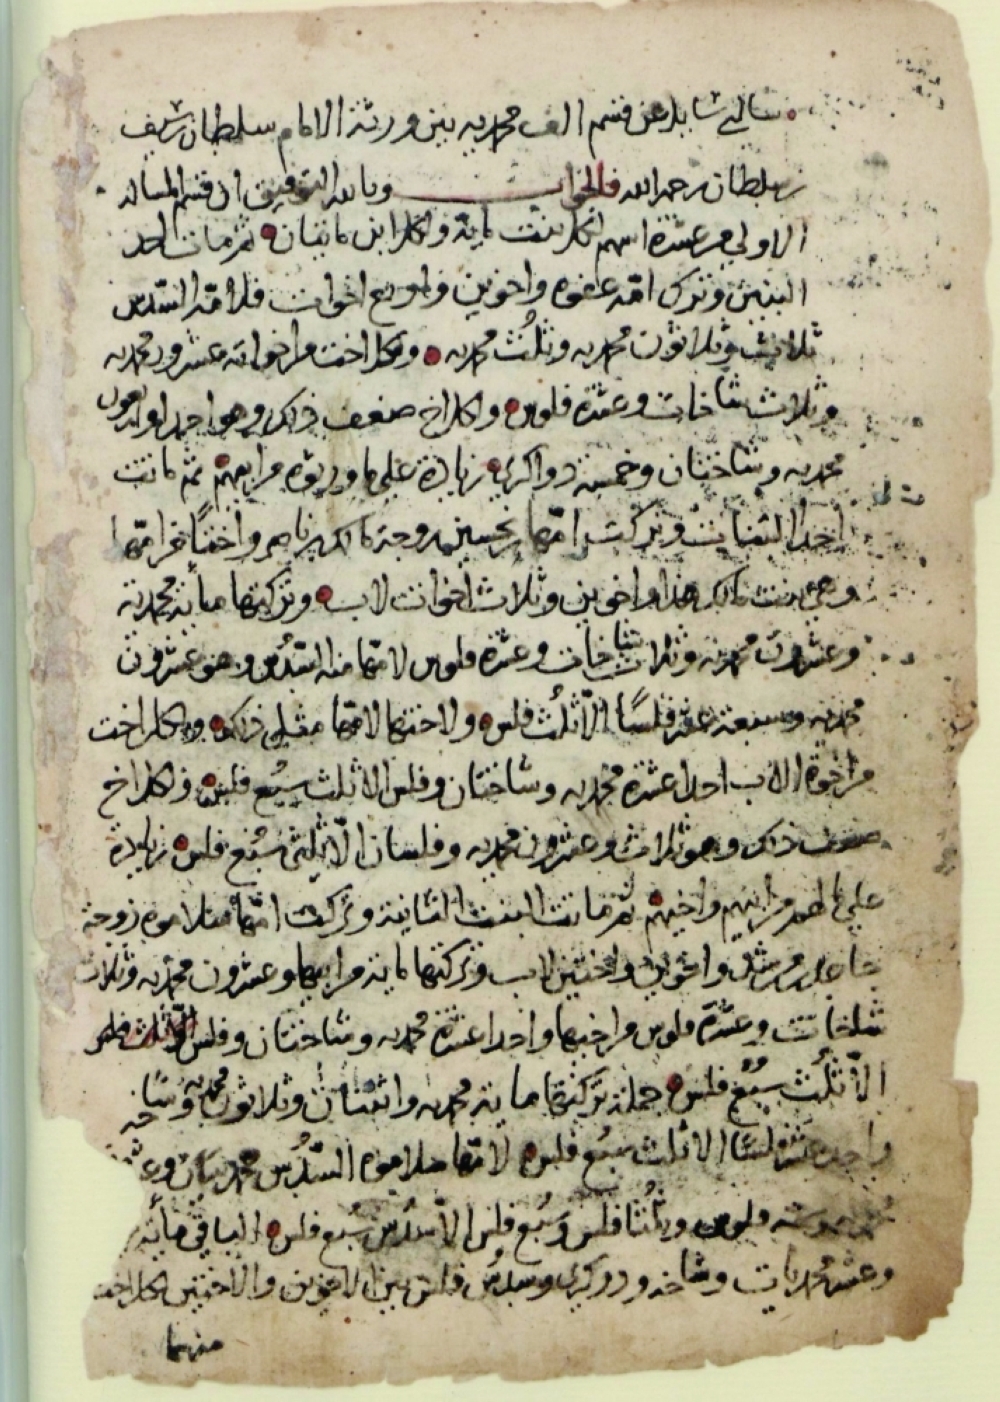 سالني سايل عن قسم الف محمديه بين ورثة الامام سلطان بن سيف
بن سلطان رحمه الله فالجواب وبالله التوفيق ان قسم المسالة
الاولى من عشرة اسهم لكل بنت ماية ولكل ابن مايتان ثم مات احد
البنين وترك امه واخوين واربع اخوات فلامه السدس
ثلاث وثلاثون محمديه وثلث محمديه ولكل اخت من اخواته عشرون محمديه
وثلاث شاخات وعشرة فلوس ولكل اخ ضعف ذلك وهو احد واربعون
محمديه وشاختان وخمسة دواكري زيادة على ما ورثوه من ابيهم ثم ماتت
احدا البنات وتركت امها زوجة مالك بن ناصر واختًا من امها
وهي بنت مالك هذا واخوين وثلاث اخوات لاب وتركتها مأية محمدية
وعشرون محمدية وثلاث شاخات وعشرة فلوس لامها منه السدس وهو عشرون
محمديه وسبعة عشر فلسًا الا ثلث فلس ولاختها لامها مثل ذلك ولكل اخت
من اخوة الاب احدا عشرة محمديه وشاختان وفلس الا ثلث سبع فلس ولكل اخ
ضعف ذلك وهو ثلاث وعشرون محمديه وفلسان الا ثلثى سبع فلس زيادة
على ما لهم من ابيهم واخيهم ثم ماتت البنت الثانية وتركت امها زوجة
واخوين واختين لاب وتركتها ماية من ابيها وعشرون محمديه وثلاث
شاخات وعشرة فلوس من اخيها واحدا عشرة محمديه وشاختان وفلس الا ثلث
الا ثلث سبع فلس جملة تركتها ماية محمديه واثنتان وثلاثون محمديه وشاخه
واحد عشر فلسًا الا ثلث سبع فلس لامها السدس
فلوس وثلثا فلس وسبع فلس الا سدس سبع فلس الباقي مأية
وعشر محمديات وشاخه ودوكري وسدس فلس بين الاخوين والاختين لكل اخت
منهما